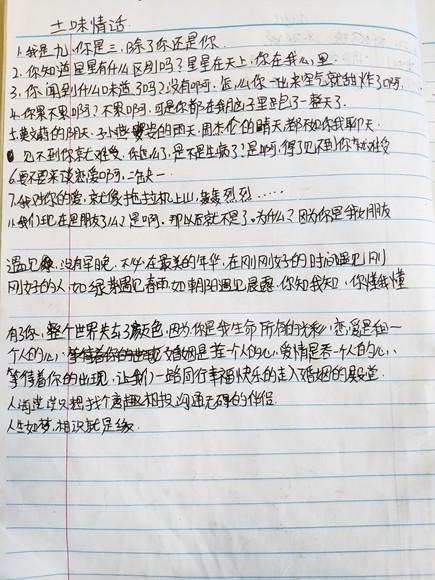 土味情话
1.我是九,你是三,除了你还是你
2.你知道星星有什么区别吗?星星在天上,你在我心里
3.你闻到什么味道了吗?没有啊,怎么你一出来空气就甜炸了啊
4.你累不累啊?不累啊,可是你都在我脑子里跑了一整天了
5.莫文蔚的阴天,孙燕姿的雨天,周杰伦的晴天,都不如你我聊天
见不到你就难受,你怎么了,是不是生病了?是啊,得了见不到你就难受
6.要不要来谈恋爱啊,二缺一
7.我对你的爱,就像拖拉机上山,轰轰烈烈……
8.我们现在是朋友了么?是啊,那以后就不是了,为什么?因为你是我女朋友
遇见,没有早晚,不必在最美的年华,在刚刚好的时间遇见刚
刚好的人,如绿茶遇见春雨,如朝阳遇见晨露,你知我知,你懂我懂
有了你,整个世界失去了颜色,因为你是我生命所有的光彩,恋爱是在一
个人的心,婚姻是在一个人的心,爱情是在一个人的心,
等待着你的出现,让我们一路同行幸福快乐的走入婚姻的殿堂
人海茫茫只想找个意趣相投沟通无碍的伴侣
人生如梦,相识就是缘